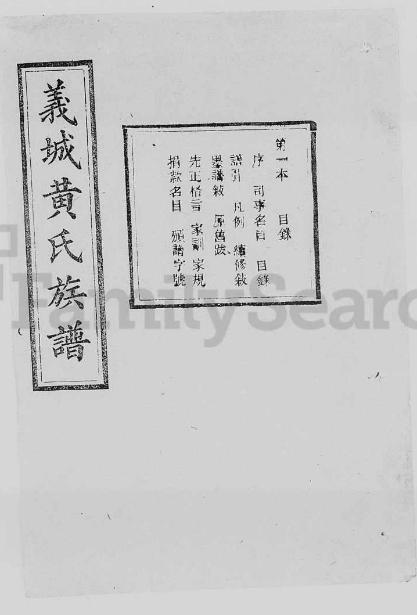 義城黄氏族譜
第一本 目錄
序 司事名目 目錄
譜引 凡例 續修敘
墨譜敘 原舊跋
先正格言 家訓 家規
捐款名目 頒譜字號
FamilySearch